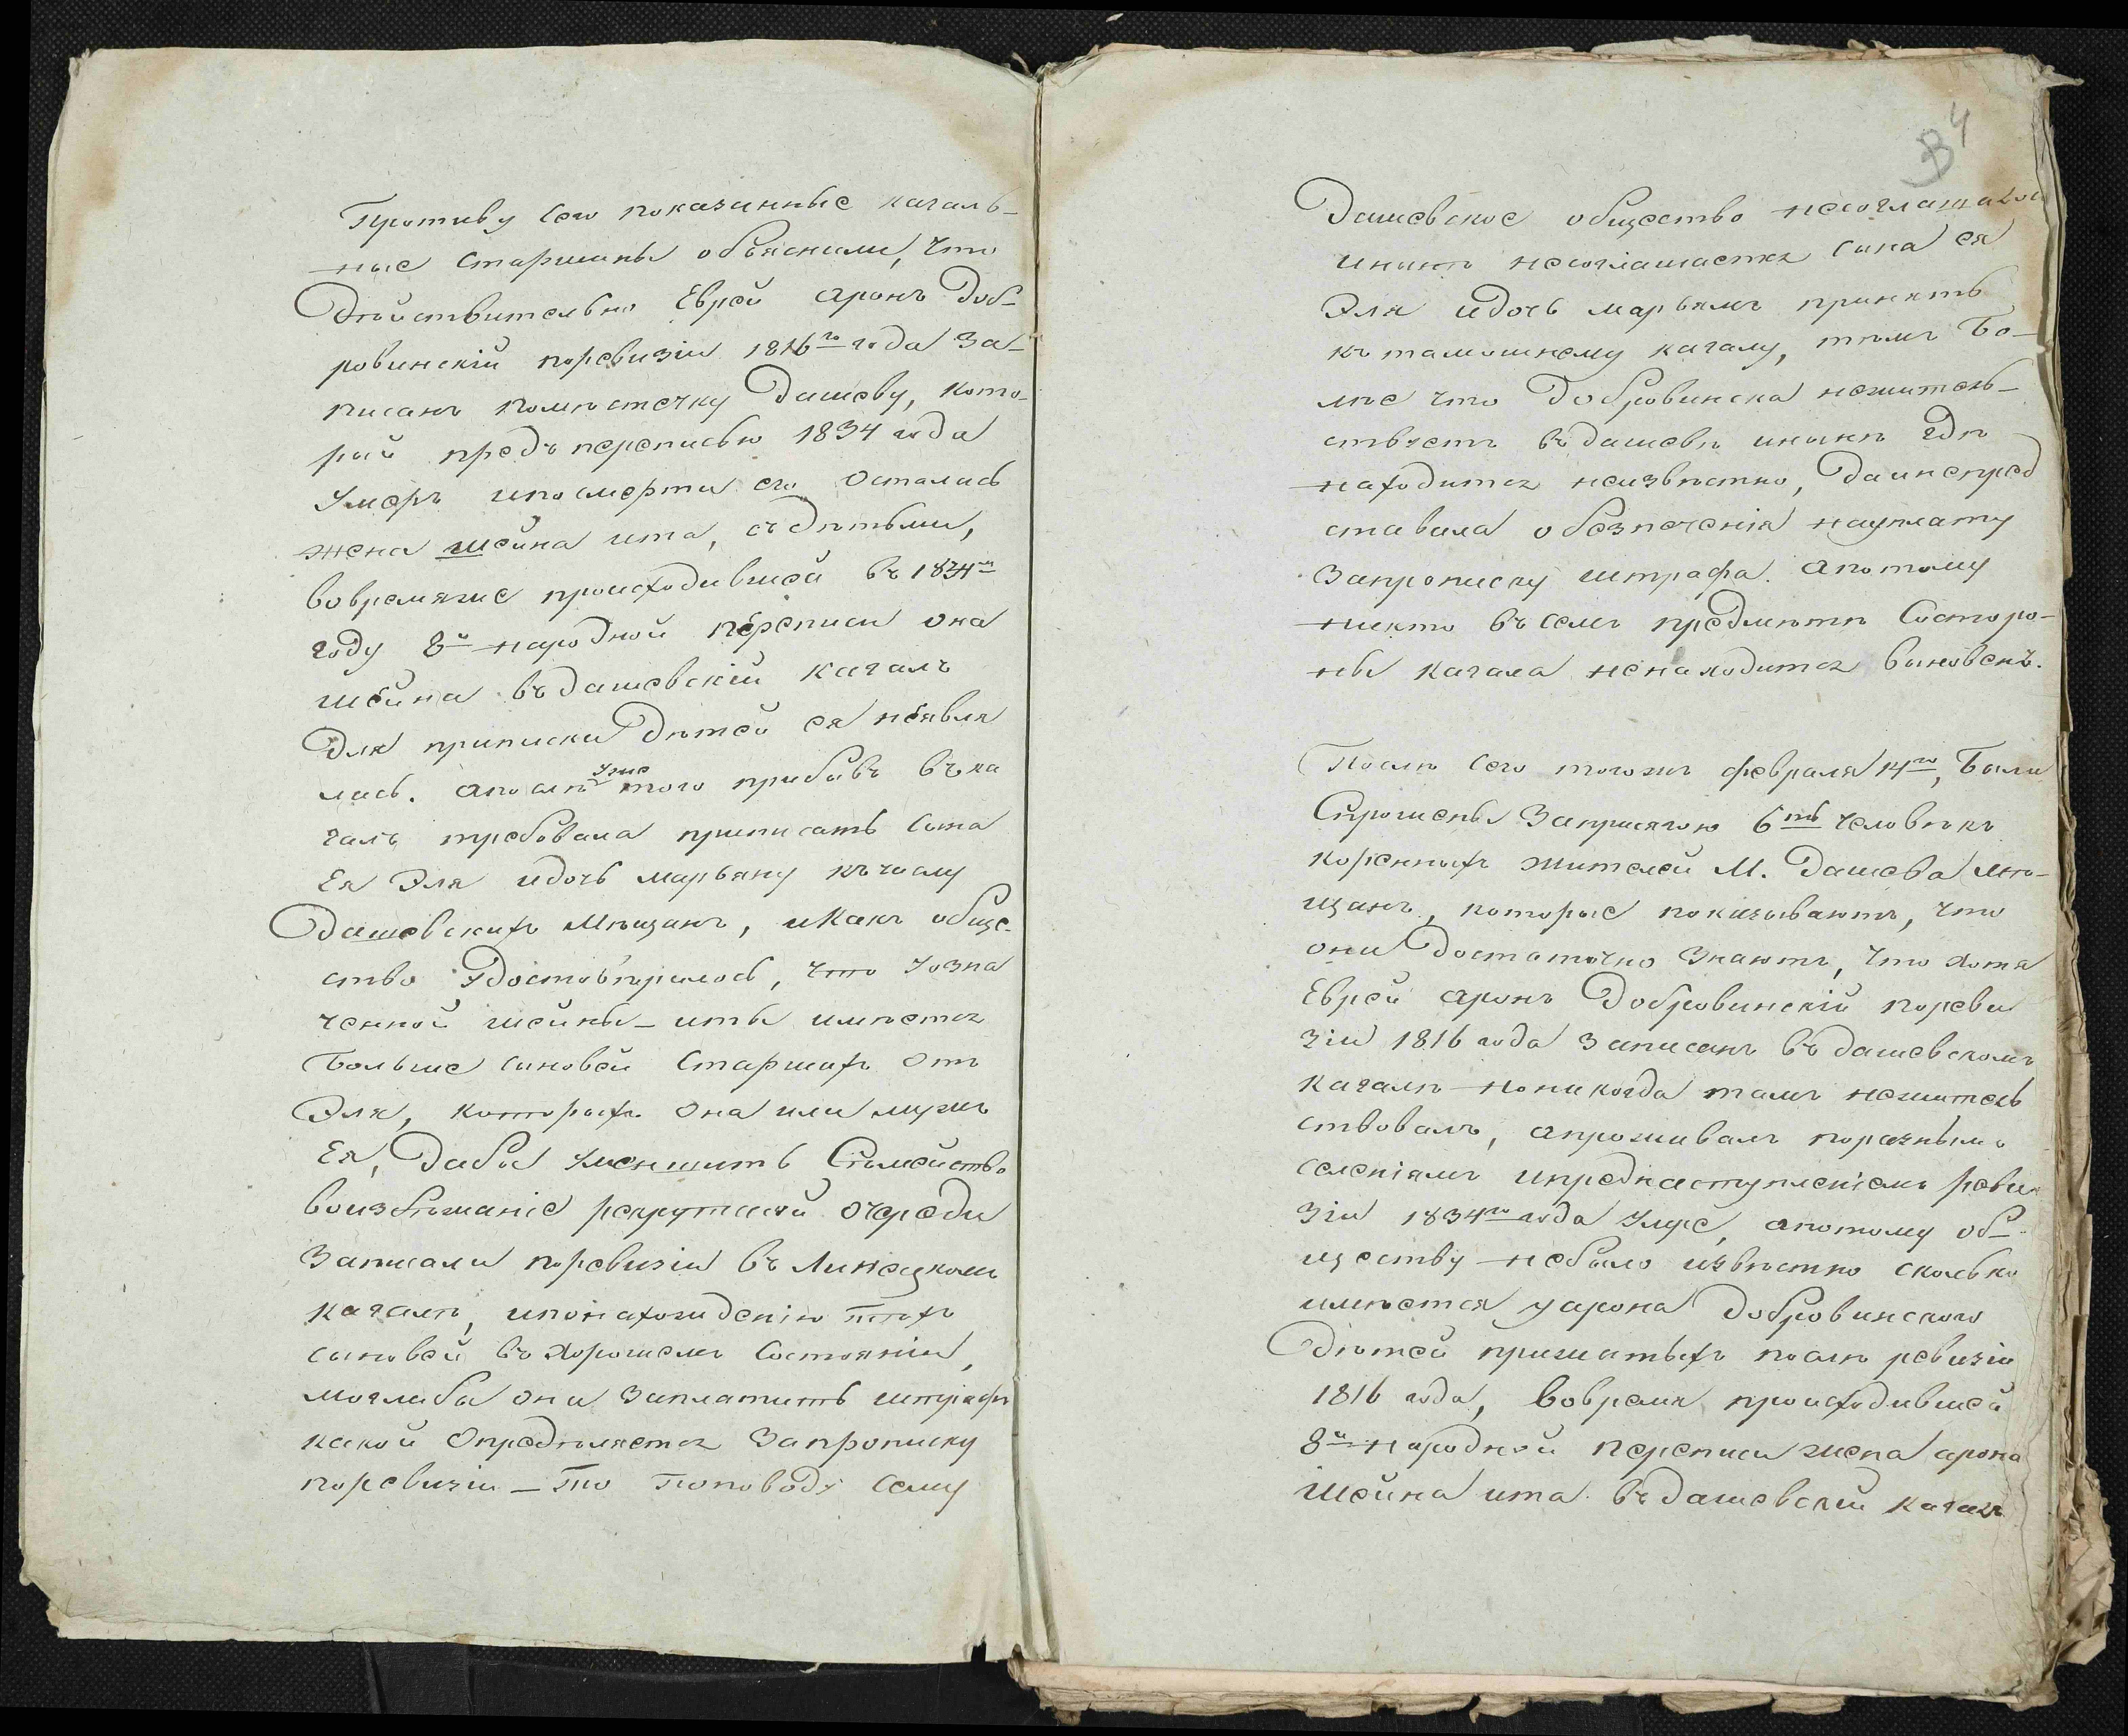 Противу сего показанные кагаль-
ные старшины объяснили, что
Действительно Еврей Аронъ Доб-
ровинскій поревизіи 1816го года За-
писанъ помѣстечку Дашеву, кото-
рый предъ переписью 1834 года
Умеръ ипосмерти его Остались
жена шейна ита, съ дѣтьми,
вовремяже происходившей въ 1834м
году 8й народной переписи она
шейна въ дашевскій кагалъ
Для приписки Дѣтей ея неявля
лась. апослѣ уже того прибывъ въ ка
галъ требовала приписать Сына
Ея Эля идочь марьяну къ числу
Дашевскихъ Мѣщанъ, икакъ обще-
ство Удостовѣрилось, что Уозна
ченной шейны-иты имѣется
Больше сыновей Старшихъ Отъ
Эля, которыхъ Она или мужъ
Ея, Дабы уменшить Семейство
воизбѣжаніе рекрутской Очереди
Записали поревизіи въ Линецкомъ
кагалѣ, ипонахожденію тѣхъ
сыновей въ хорошемъ Состояніи,
моглибы они Заплатить штрафъ
какой Опредѣляется Запрописку
поревизіи - то поповоду Сему
4
Дашевское общество несоглашалось
инынѣ несоглашается Сына ея
Эля идочь марьямъ принять
къ тамошнему кагалу, тѣмъ Бо-
лѣе что Добровинска нежитель-
ствуетъ въ дашевѣ инынѣ гдѣ
находится неизвѣстно, Даинепред
ставила обезпеченія науплату
Запрописку штрафа. апотому
никто въ семъ предмѣтѣ Состоро-
ны кагала ненаходится виновенъ.
Послѣ сего тогожъ февраля 14го, Были
Спрошены Заприсягою 6ть человѣкъ
коренныхъ жителей М. Дашева мѣ-
щанъ, которые показываютъ, что
они Достаточно Знаютъ, что хотя
Еврей аронъ Добровинскій пореви
зіи 1816 года Записанъ въ дашевскомъ
кагалѣ нониногда тамъ нежитель
ствовалъ, апроживалъ поразнымъ
селеніямъ ипреднаступленіемъ реви
зіи 1834го года Умре, апотому об-
ществу небыло извѣстно сколько
имѣется уарона Добровинского
Дѣтей прижитыхъ послѣ ревизіи
1816 года, вовремя происходившей
8й народной переписи жена арона
Шейна ита въ дашевскій кагалъ